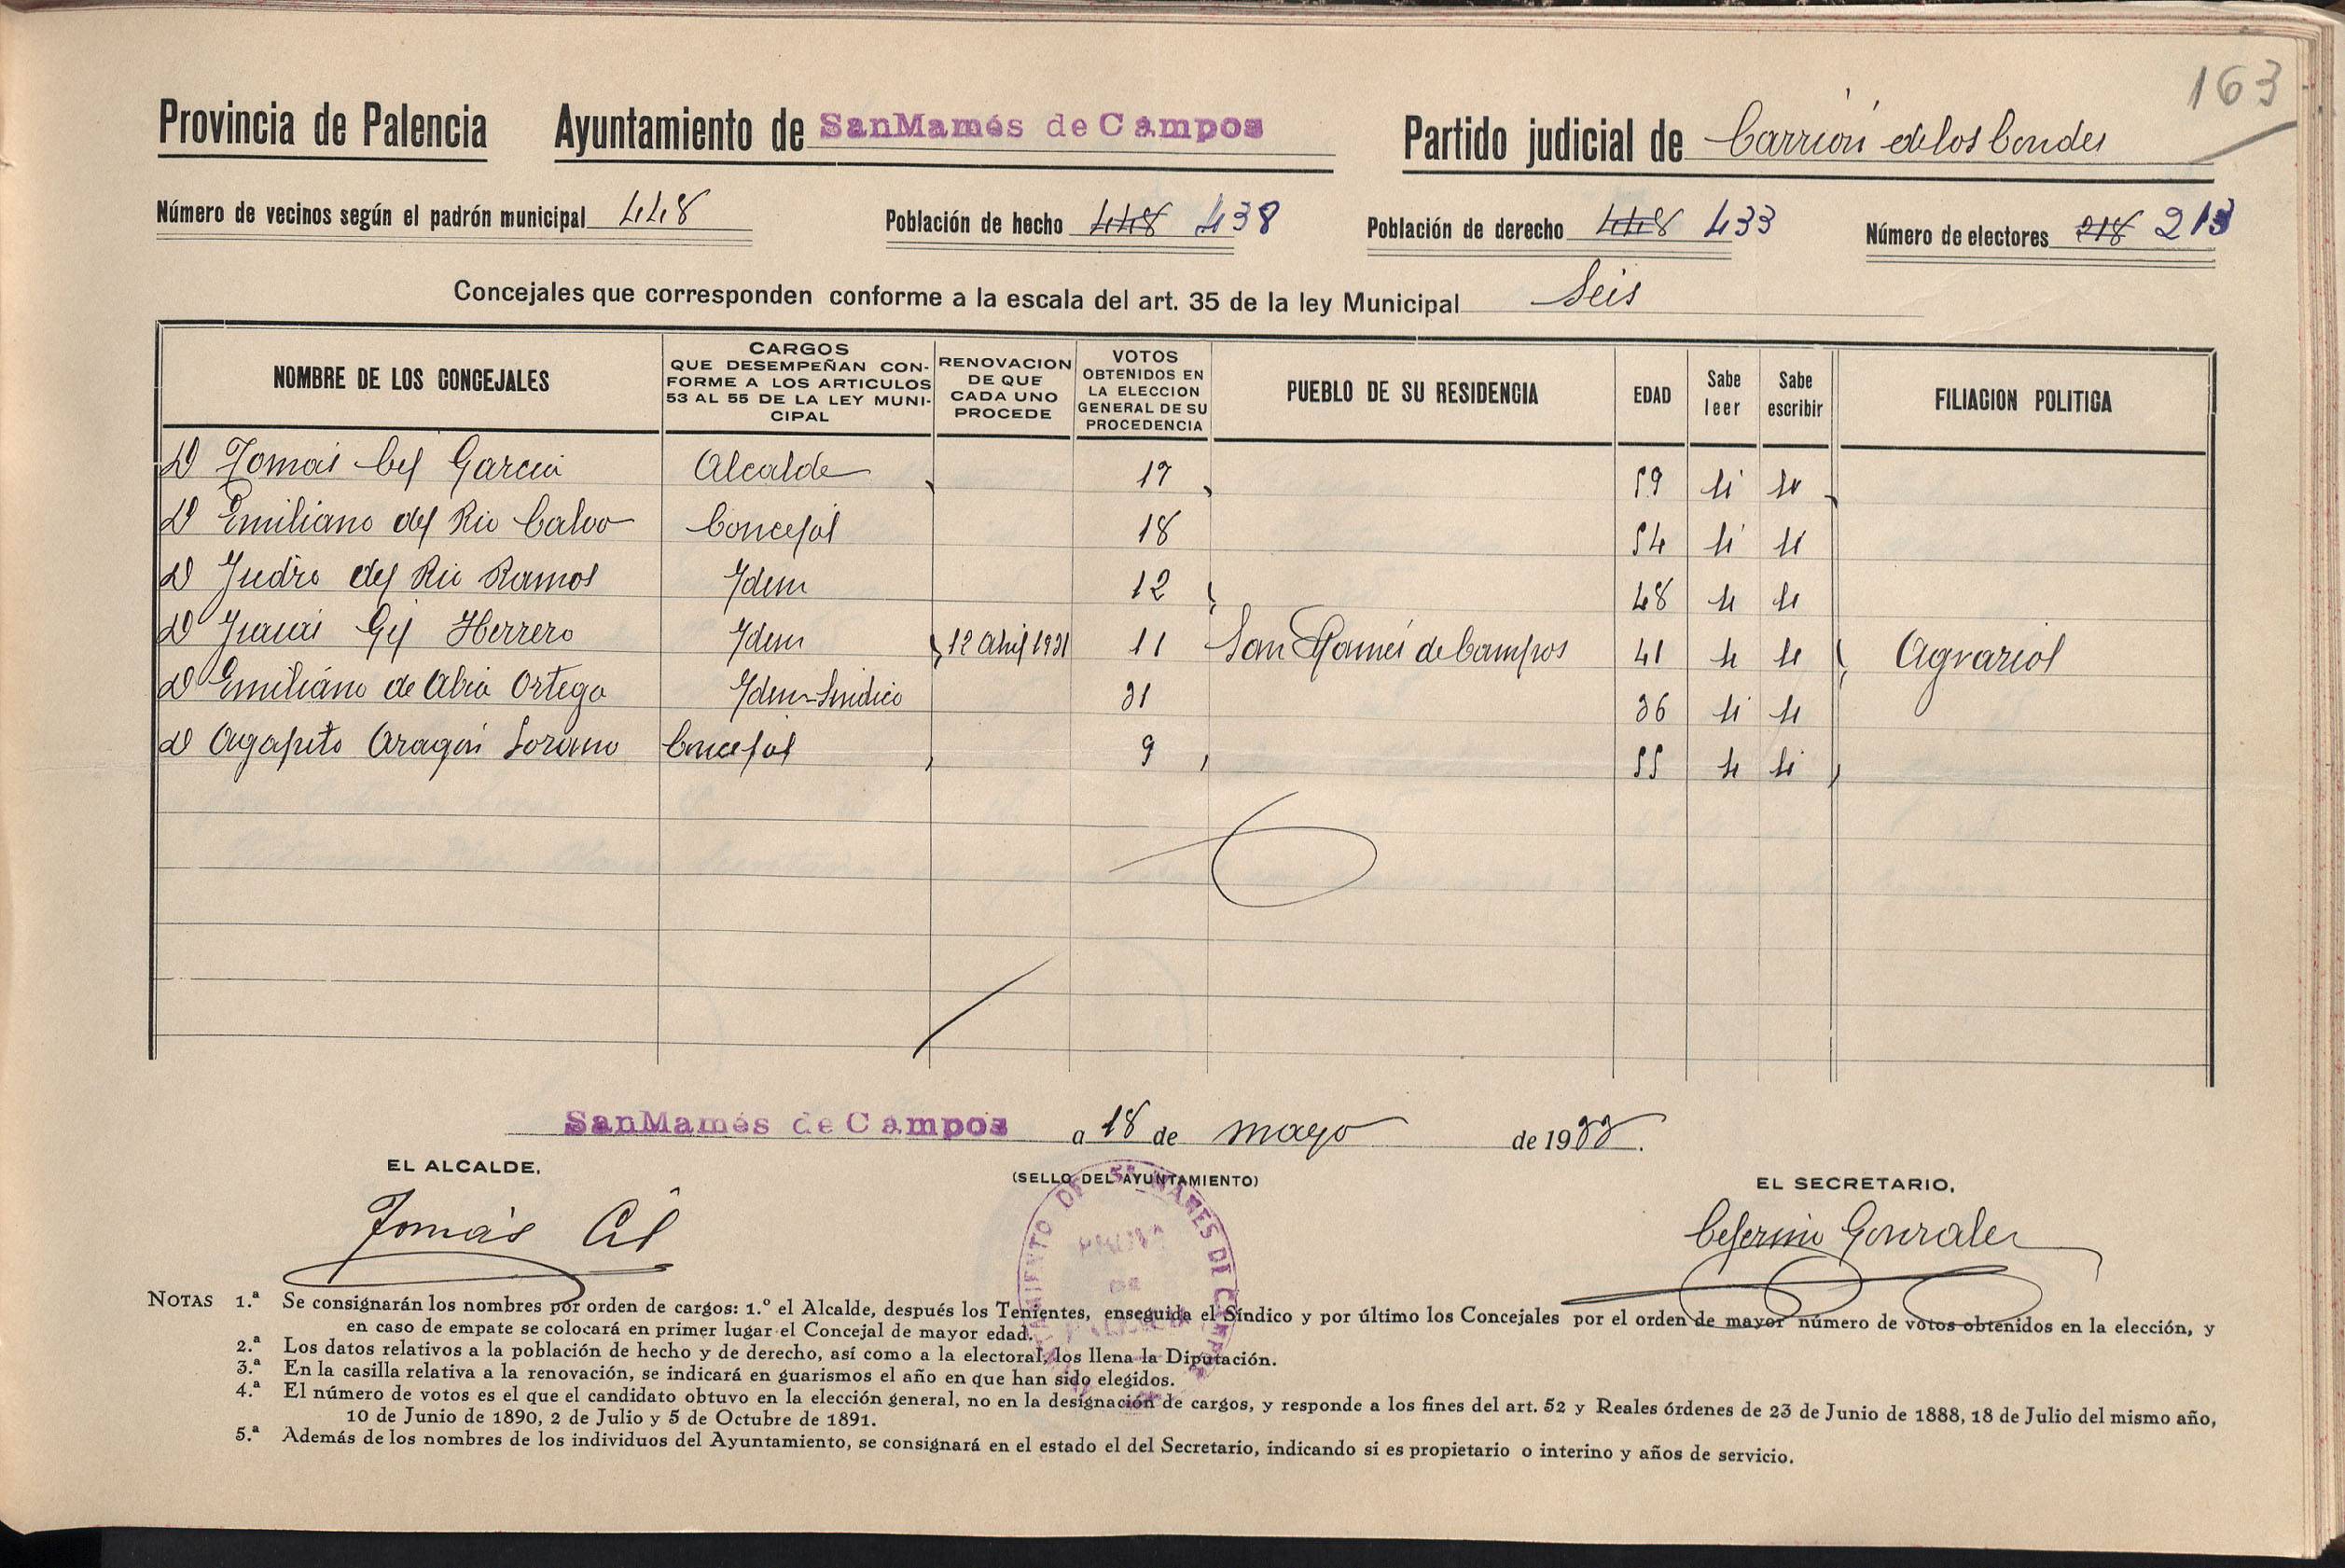 163
Provincia de Palencia Ayuntamiento de San Mamés de Campos Partido judicial de Carrión de los Condes
Número de vecinos según el padrón municipal 448 Población de hecho 448 438 Población de derecho 448 433 Número de electores 218 213
Concejales que corresponden conforme a la escala del art. 35 de la ley Municipal Seis
NOMBRE DE LOS CONCEJALES
CARGOS
QUE DESEMPEÑAN CON-
FORME A LOS ARTICULOS
53 AL 55 DE LA LEY MUNI-
CIPAL
RENOVACION
DE QUE
CADA UNO
PROCEDE
VOTOS
OBTENIDOS EN
LA ELECCION
GENERAL DE SU
PROCEDENCIA
PUEBLO DE SU RESIDENCIA
EDAD
Sabe
leer
Sabe
escribir
FILIACION POLITICA
D Tomás Cil García Alcalde 17 59 si si
D Emiliano del Rio Calvo Concejal 18 54 si si
D Isidro del Rio Ramos Idem 12 48 si si
D Gil Herrero Idem 12 Abril 1931 11 San Mamés de Campos 41 si si Agrarios
D Emiliano de Abia Ortega Idem-Sindico 31 36 si si
D Agapito Aragón Lozano Concejal 9 55 si si
San Mamés de Campos a 18 de mayo de 1933.
EL ALCALDE, (SELLO DEL AYUNTAMIENTO) EL SECRETARIO,
Tomás Cil Ceferino Gonzalez
NOTAS 1.ª Se consignarán los nombres por orden de cargos: 1.º el Alcalde, después los Tenientes, enseguida el Síndico y por último los Concejales por el orden de mayor número de votos obtenidos en la elección, y
en caso de empate se colocará en primer lugar el Concejal de mayor edad.
2.ª Los datos relativos a la población de hecho y de derecho, así como a la electoral, los llena la Diputación.
3.ª En la casilla relativa a la renovación, se indicará en guarismos el año en que han sido elegidos.
4.ª El número de votos es el que el candidato obtuvo en la elección general, no en la designación de cargos, y responde a los fines del art. 52 y Reales órdenes de 23 de Junio de 1888, 18 de Julio del mismo año,
10 de Junio de 1890, 2 de Julio y 5 de Octubre de 1891.
5.ª Además de los nombres de los individuos del Ayuntamiento, se consignará en el estado el del Secretario, indicando si es propietario o interino y años de servicio.